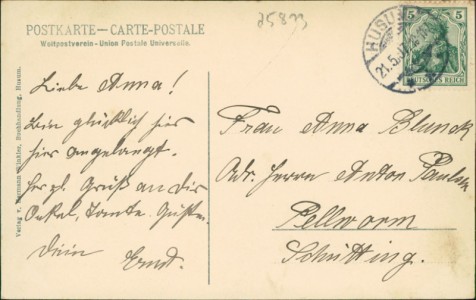 25833
POSTKARTE — CARTE-POSTALE
Weltpostverein - Union Postale Universelle.
HUSUM
21.5.
5 5
DEUTSCHES REICH
Liebe Anna!
Bin glücklich hier
hier angelangt.
Herzl. Gruß an Dir
Onkel, Tante.
Dein Ernst.
Frau Anna Blunck
Adr. Herrn Anton Paulsen
Pellworm
Schütting.
Verlag v. Hermann Buchhandlung, Husum.